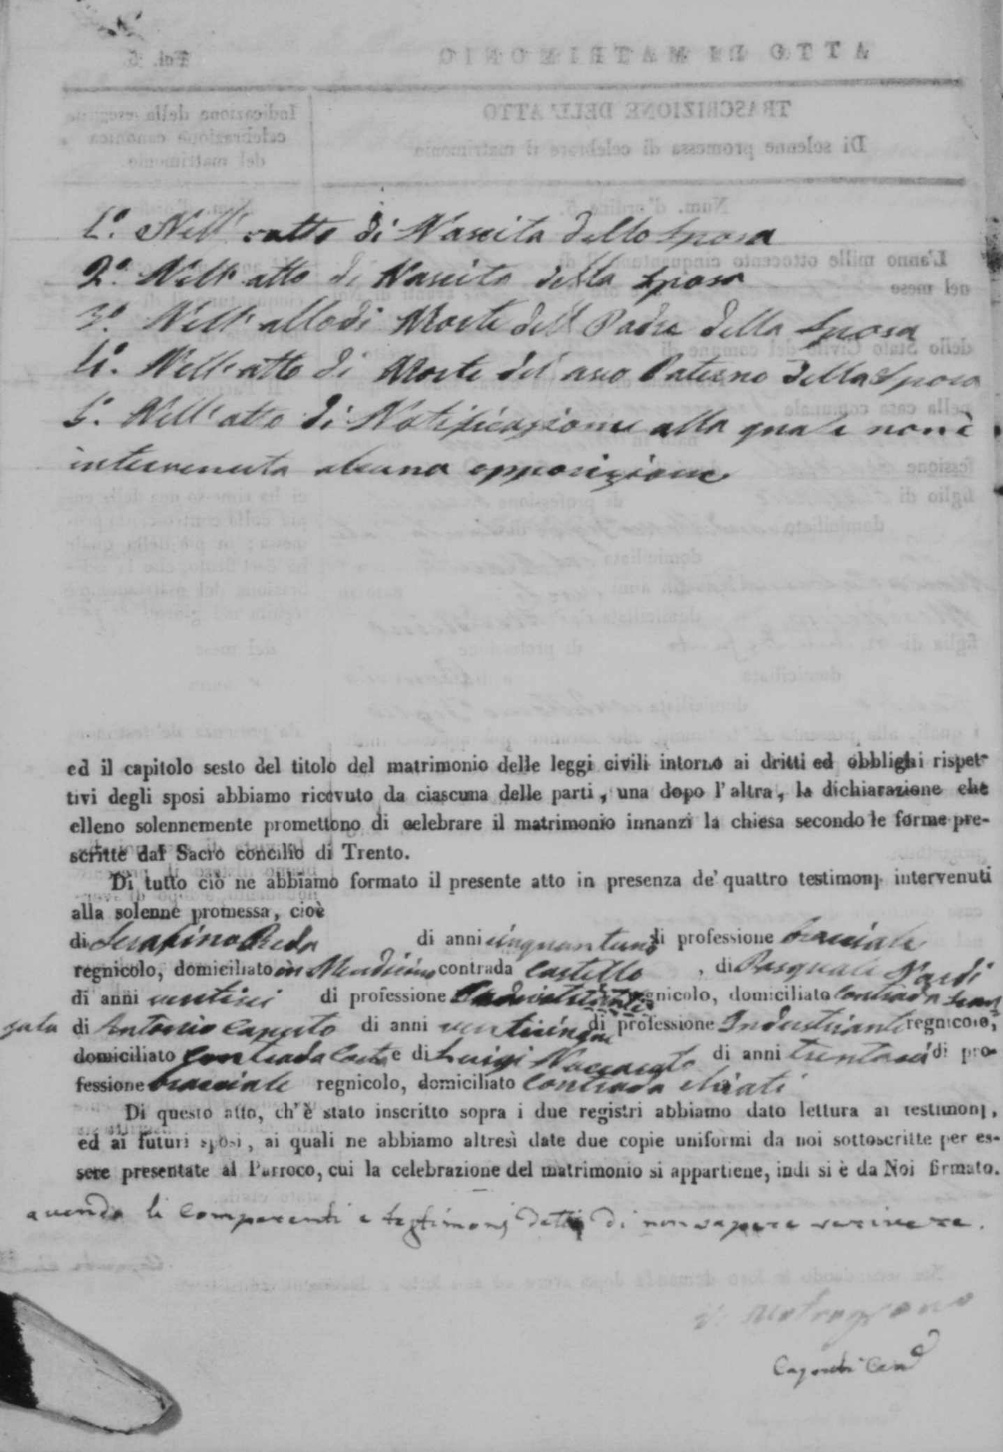 1.º Nell' atto di Nascita dello Sposo
2.º Nell' atto di Nascita della Sposa
3.º Nell' atto di Morte dell Padre della Sposa
4.º Nell' atto di Morte del avo Paterno della Sposa
5.º Nell' atto di Notificazione alla quale non è
intervenuta alcuna opposizione
ed il capitolo sesto del titolo del matrimonio delle leggi civili intorno ai dritti ed obblighi rispet-
tivi degli sposi abbiamo ricevuto da ciascuna delle parti, una dopo l'altra, la dichiarazione che
elleno solennemente promettono di celebrare il matrimonio innanzi la chiesa secondo le forme pre-
scritte dal Sacro concilio di Trento.
Di tutto ciò ne abbiamo formato il presente atto in presenza de' quattro testimonj intervenuti
alla solenne promessa, cioè
di Serafino Reda di anni cinquantuno di professione bracciale
regnicolo, domiciliato in Mendicino contrada Castello, di Pasquale Nardi
di anni ventisei di professione regnicolo, domiciliato Contrada
di Antonio Caputo di anni venticinque di professione Industriante regnicolo,
domiciliato Contrada e di Luigi di anni trentasei di pro-
fessione bracciale regnicolo, domiciliato Contrada
Di questo atto, ch'è stato inscritto sopra i due registri abbiamo dato lettura ai testimonj,
ed ai futuri sposi, ai quali ne abbiamo altresì date due copie uniformi da noi sottoscritte per es-
sere presentate al Parroco, cui la celebrazione del matrimonio si appartiene, indi si è da Noi firmato.
avendo li comparenti e testimonj detto di non sapere scrivere.